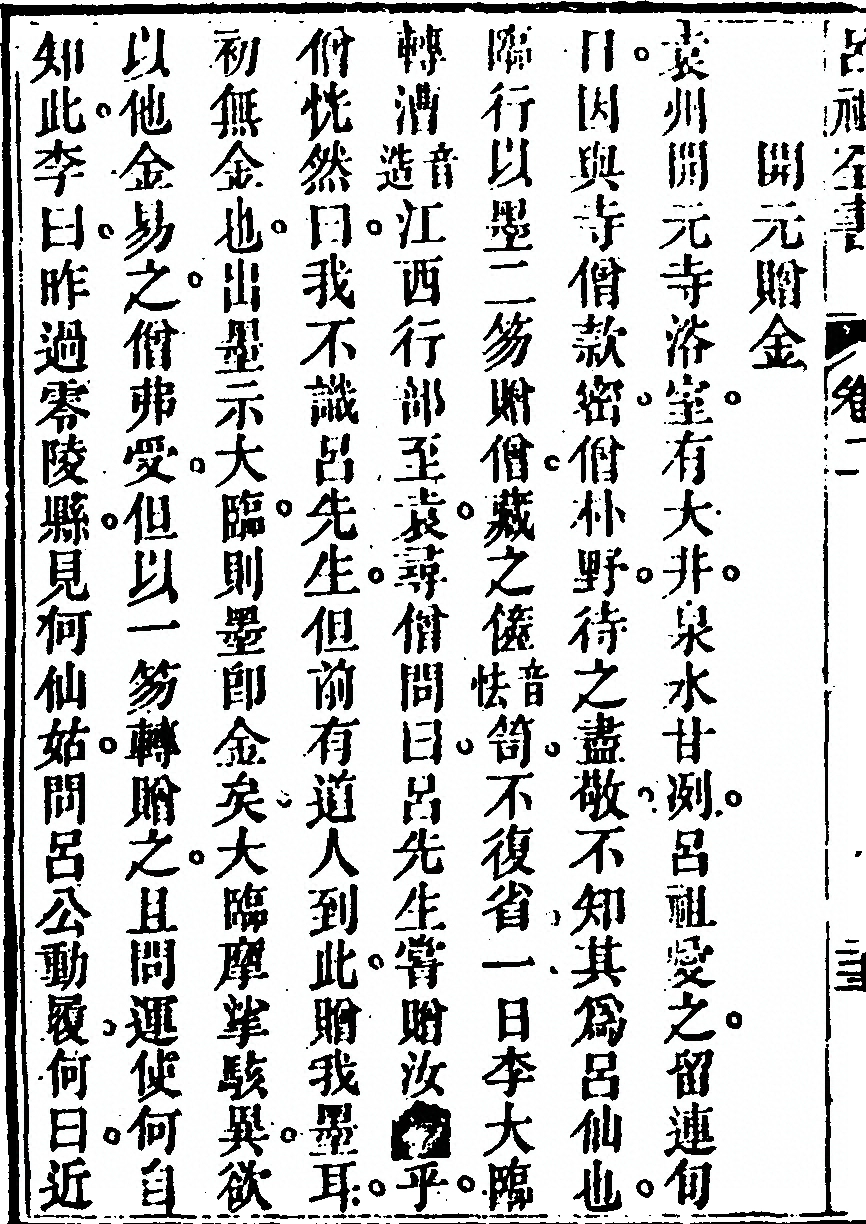 呂祖全書 卷二 三
開元贈金
袁州開元寺浴室。有大井。泉水甘冽。呂祖愛之。留連旬
日。因與寺僧款密。僧朴野。待之盡敬。不知其為呂仙也。
臨行以墨二笏贈僧。藏之篋音怯笥。不復省。一日李大臨
轉漕音造江西行部至袁。尋僧問曰。呂先生嘗贈汝乎。
僧恍然曰。我不識呂先生。但前有道人到此。贈我墨耳。
初無金也。出墨示大臨。則墨即金矣。大臨摩挲駭異。欲
以他金易之。僧弗受。但以一笏轉贈之。且問運使何自
知此。李曰。昨過零陵縣。見何仙姑。問呂公動履。何曰。近